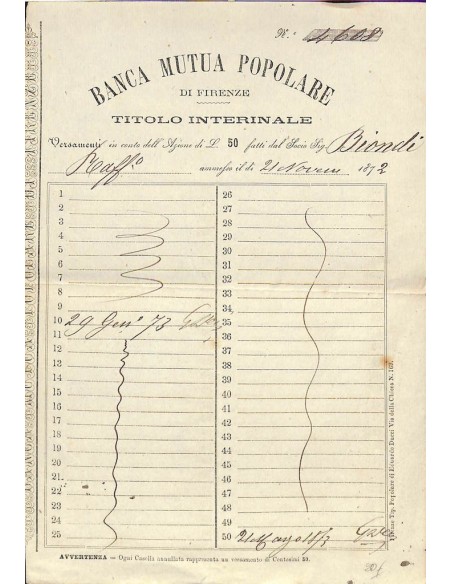 N.° 4608
BANCA MUTUA POPOLARE
DI FIRENZE
TITOLO INTERINALE
Versamenti in conto dell'Azione di L. 50 fatti dal Socio Sig. Biondi
Raff.o ammesso il dì 21 Novem 1872
1
2
3
4
5
6
7
8
9
10 29 Gen 73
11
12
13
14
15
16
17
18
19
20
21
22
23
24
25
26
27
28
29
30
31
32
33
34
35
36
37
38
39
40
41
42
43
44
45
46
47
48
49
50 21 Maggio 1873
AVVERTENZA — Ogni Casella annullata rappresenta un versamento di Centesimi 50.
Tip. Popolare di Eduardo Ducci Via della Chiesa N. 107.
206